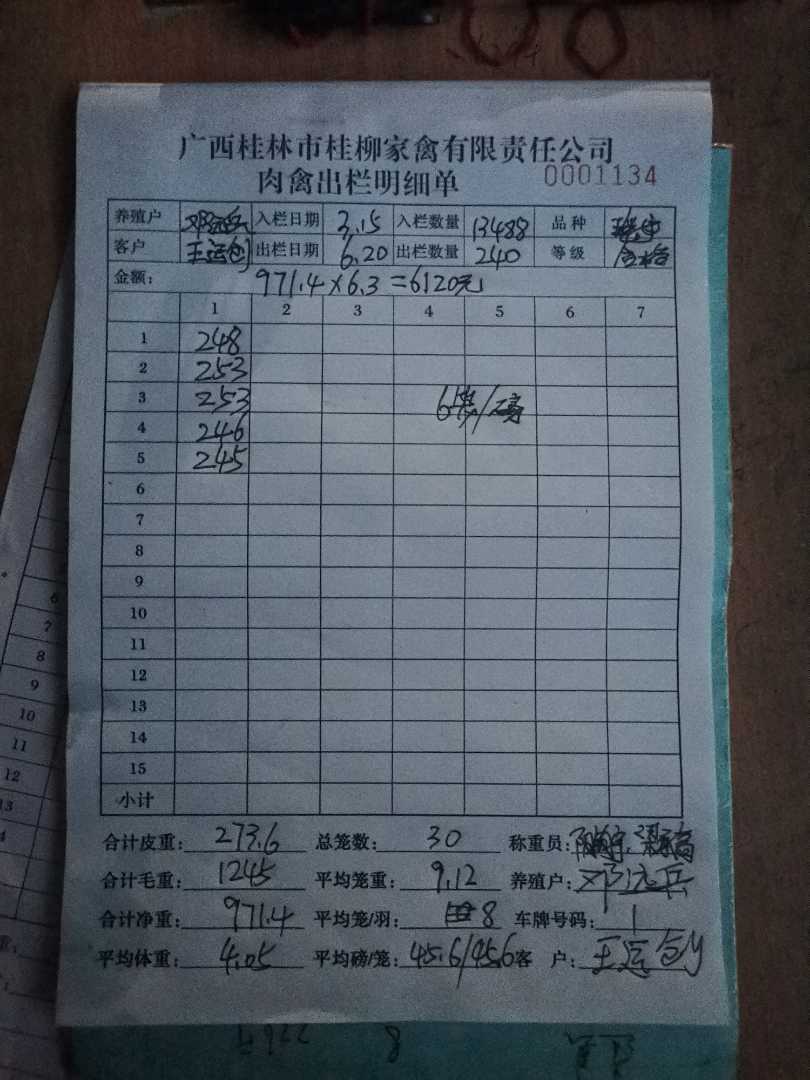 广西桂林市桂柳家禽有限责任公司
肉禽出栏明细单 0001134
养殖户 邓远兵 入栏日期 3.15 入栏数量 13488 品种
客户 王运创 出栏日期 6.20 出栏数量 240 等级 合格
金额: 971.4×6.3=6120元
1 2 3 4 5 6 7
1 248
2 253
3 253 6笼/磅
4 246
5 245
6
7
8
9
10
11
12
13
14
15
小计
合计皮重: 273.6 总笼数: 30 称重员:
合计毛重: 1245 平均笼重: 9.12 养殖户: 邓远兵
合计净重: 971.4 平均笼/羽: 8 车牌号码: 1
平均体重: 4.05 平均磅/笼: 45.6/45.6 客户: 王运创
6
7
8
9
10
11
12
13